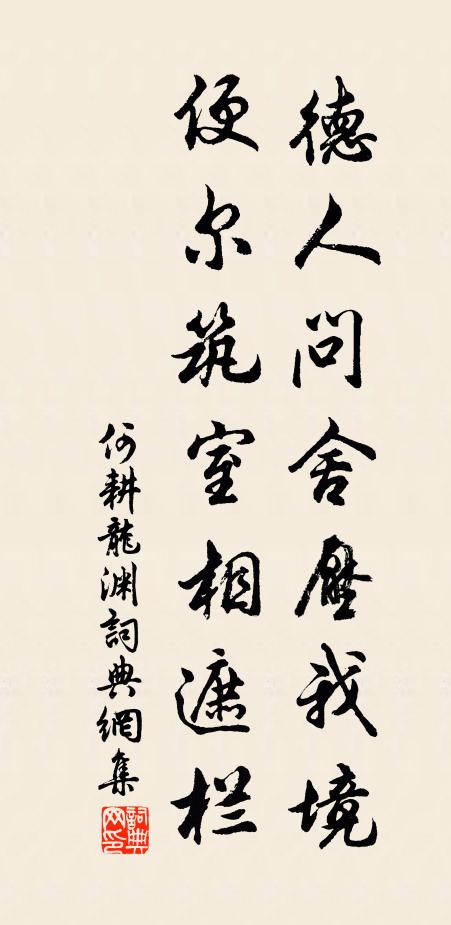 德人问舍壓我境
便尔筑室相遮栏
何耕龍渊詞典網集
詞典网印